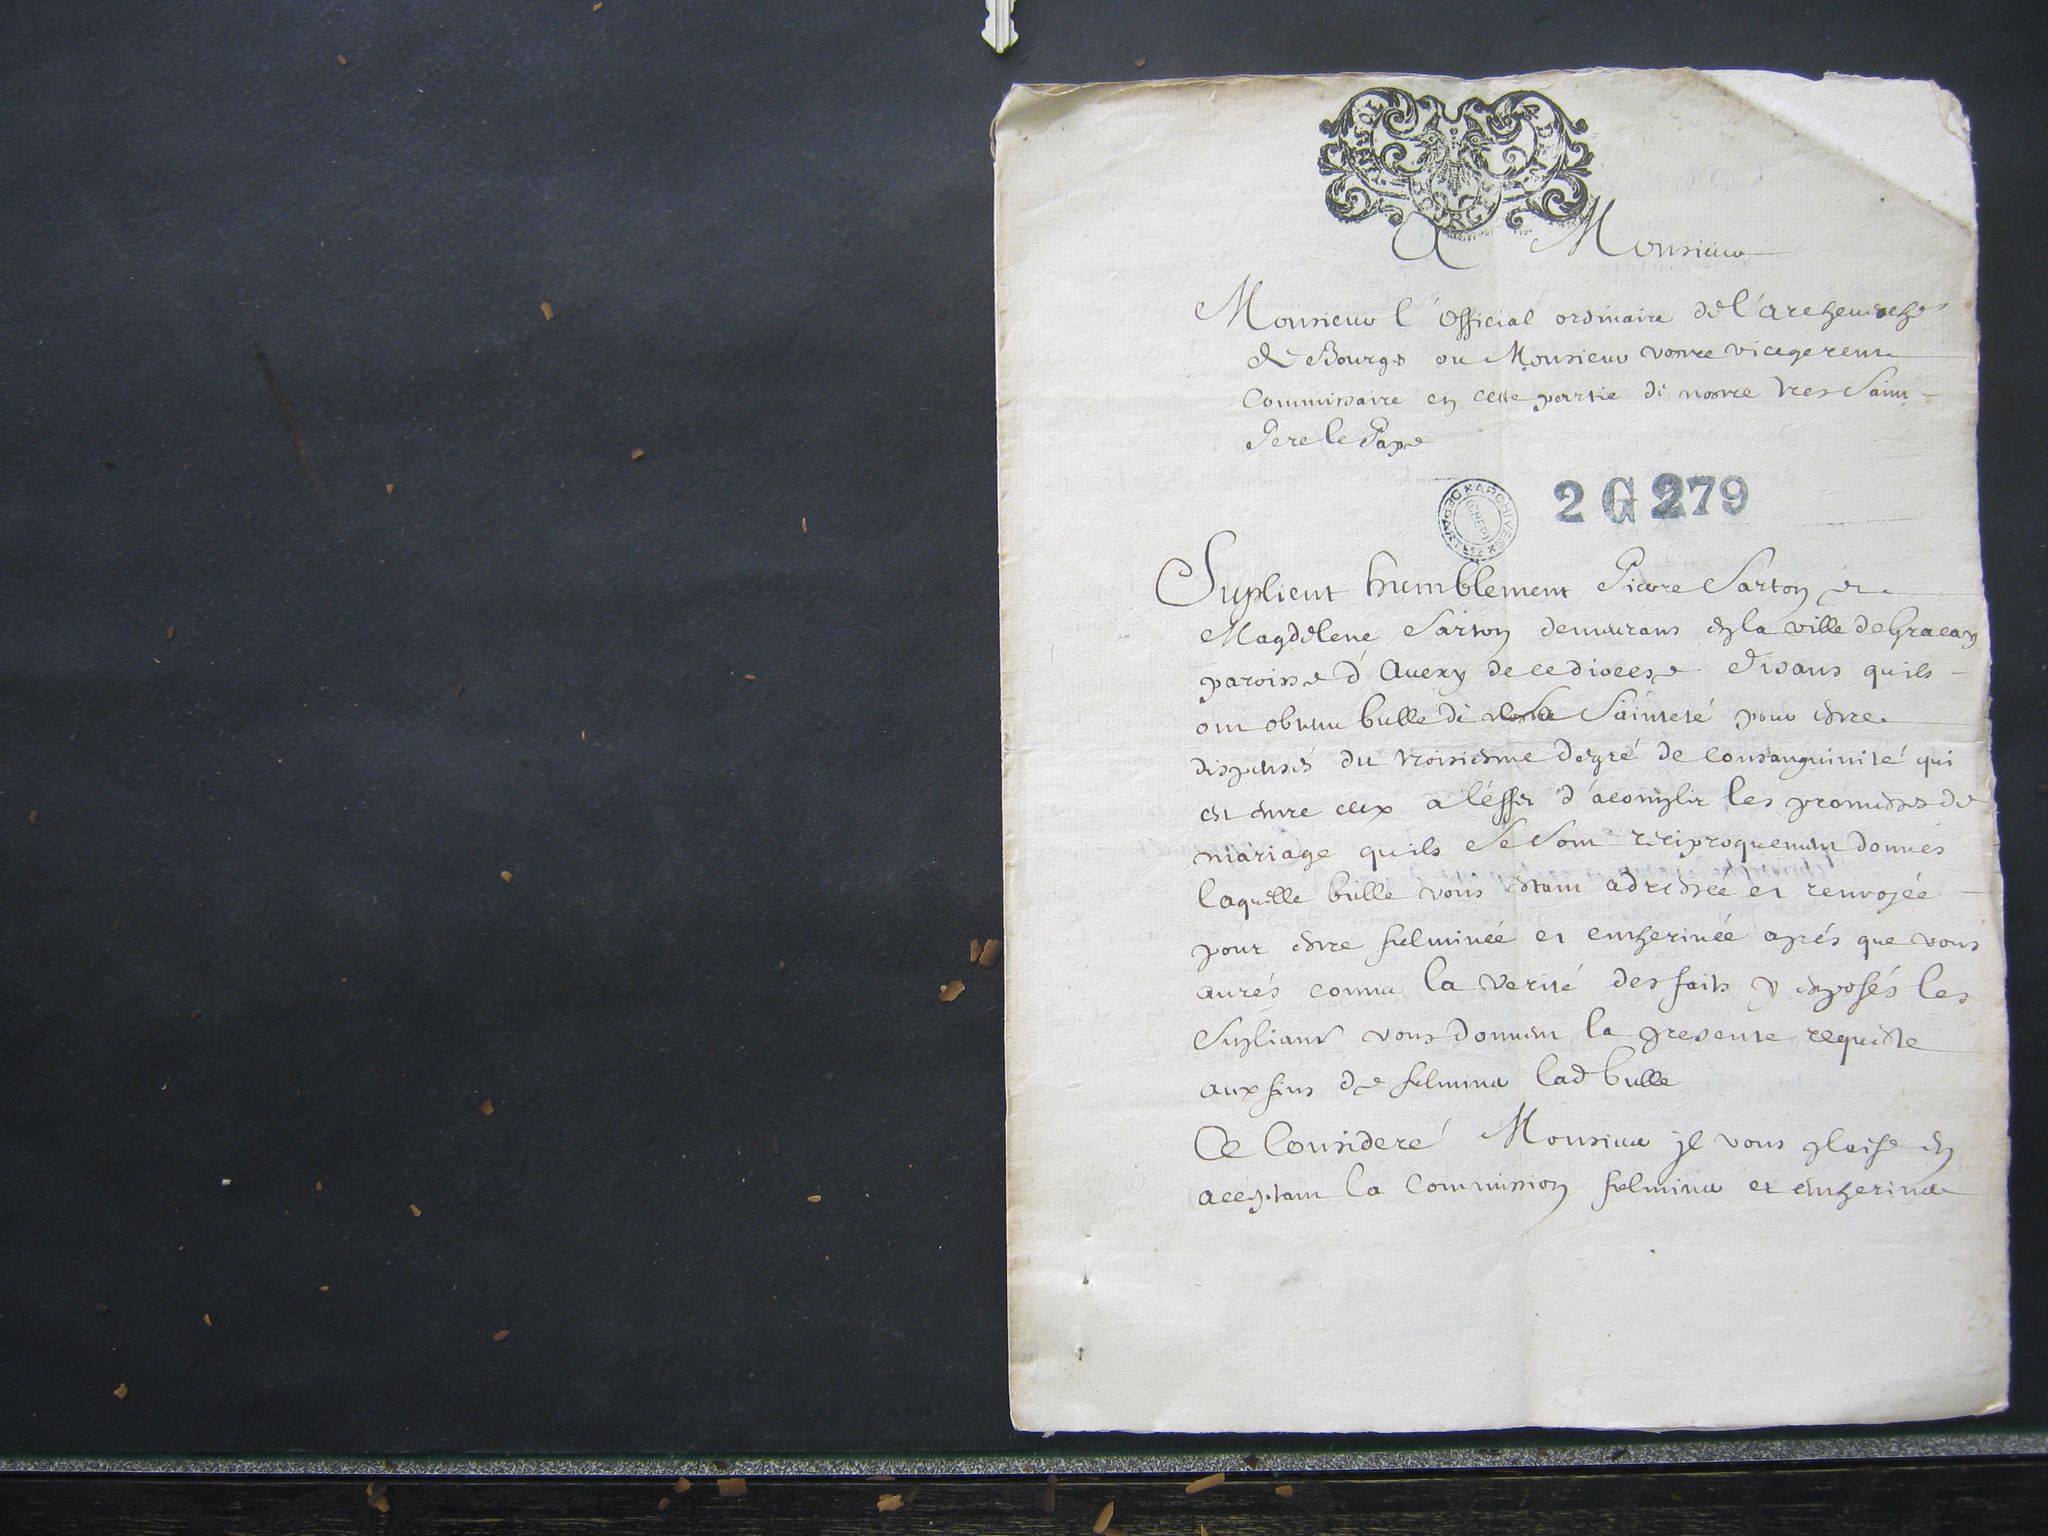 Monsieur
Monsieur l'official ordinaire de l'archeuesché
de Bourges ou Monsieur vostre vicegerent
Commissaire en cette partie de nostre tres saint
Pere le Pape
ARCHIVES DEPARTles CHER
2 G 279
Suplient humblement Pierre Sarton et
Magdelene Sarton demeurans en la ville de Gracay
paroisse d' de ce diocese disans quils
ont obtenu bulle de Sainteté pour estre
dispensés du troisiesme degré de consanguinité qui
est entre eux a léffet d'acomplir les promesses de
mariage quils se sont reciproquement donnés
laquelle bulle vous estant adressée et renvoyée
pour estre fulminée et entherinée aprés que vous
aurés connu la verité des faits y exposés les
supliants vous donnent la presente requeste
aux fins de fulminer lad bulle
Ce Consideré Monsieur jl vous plaise en
aceptant la Commission fulminer et entheriner